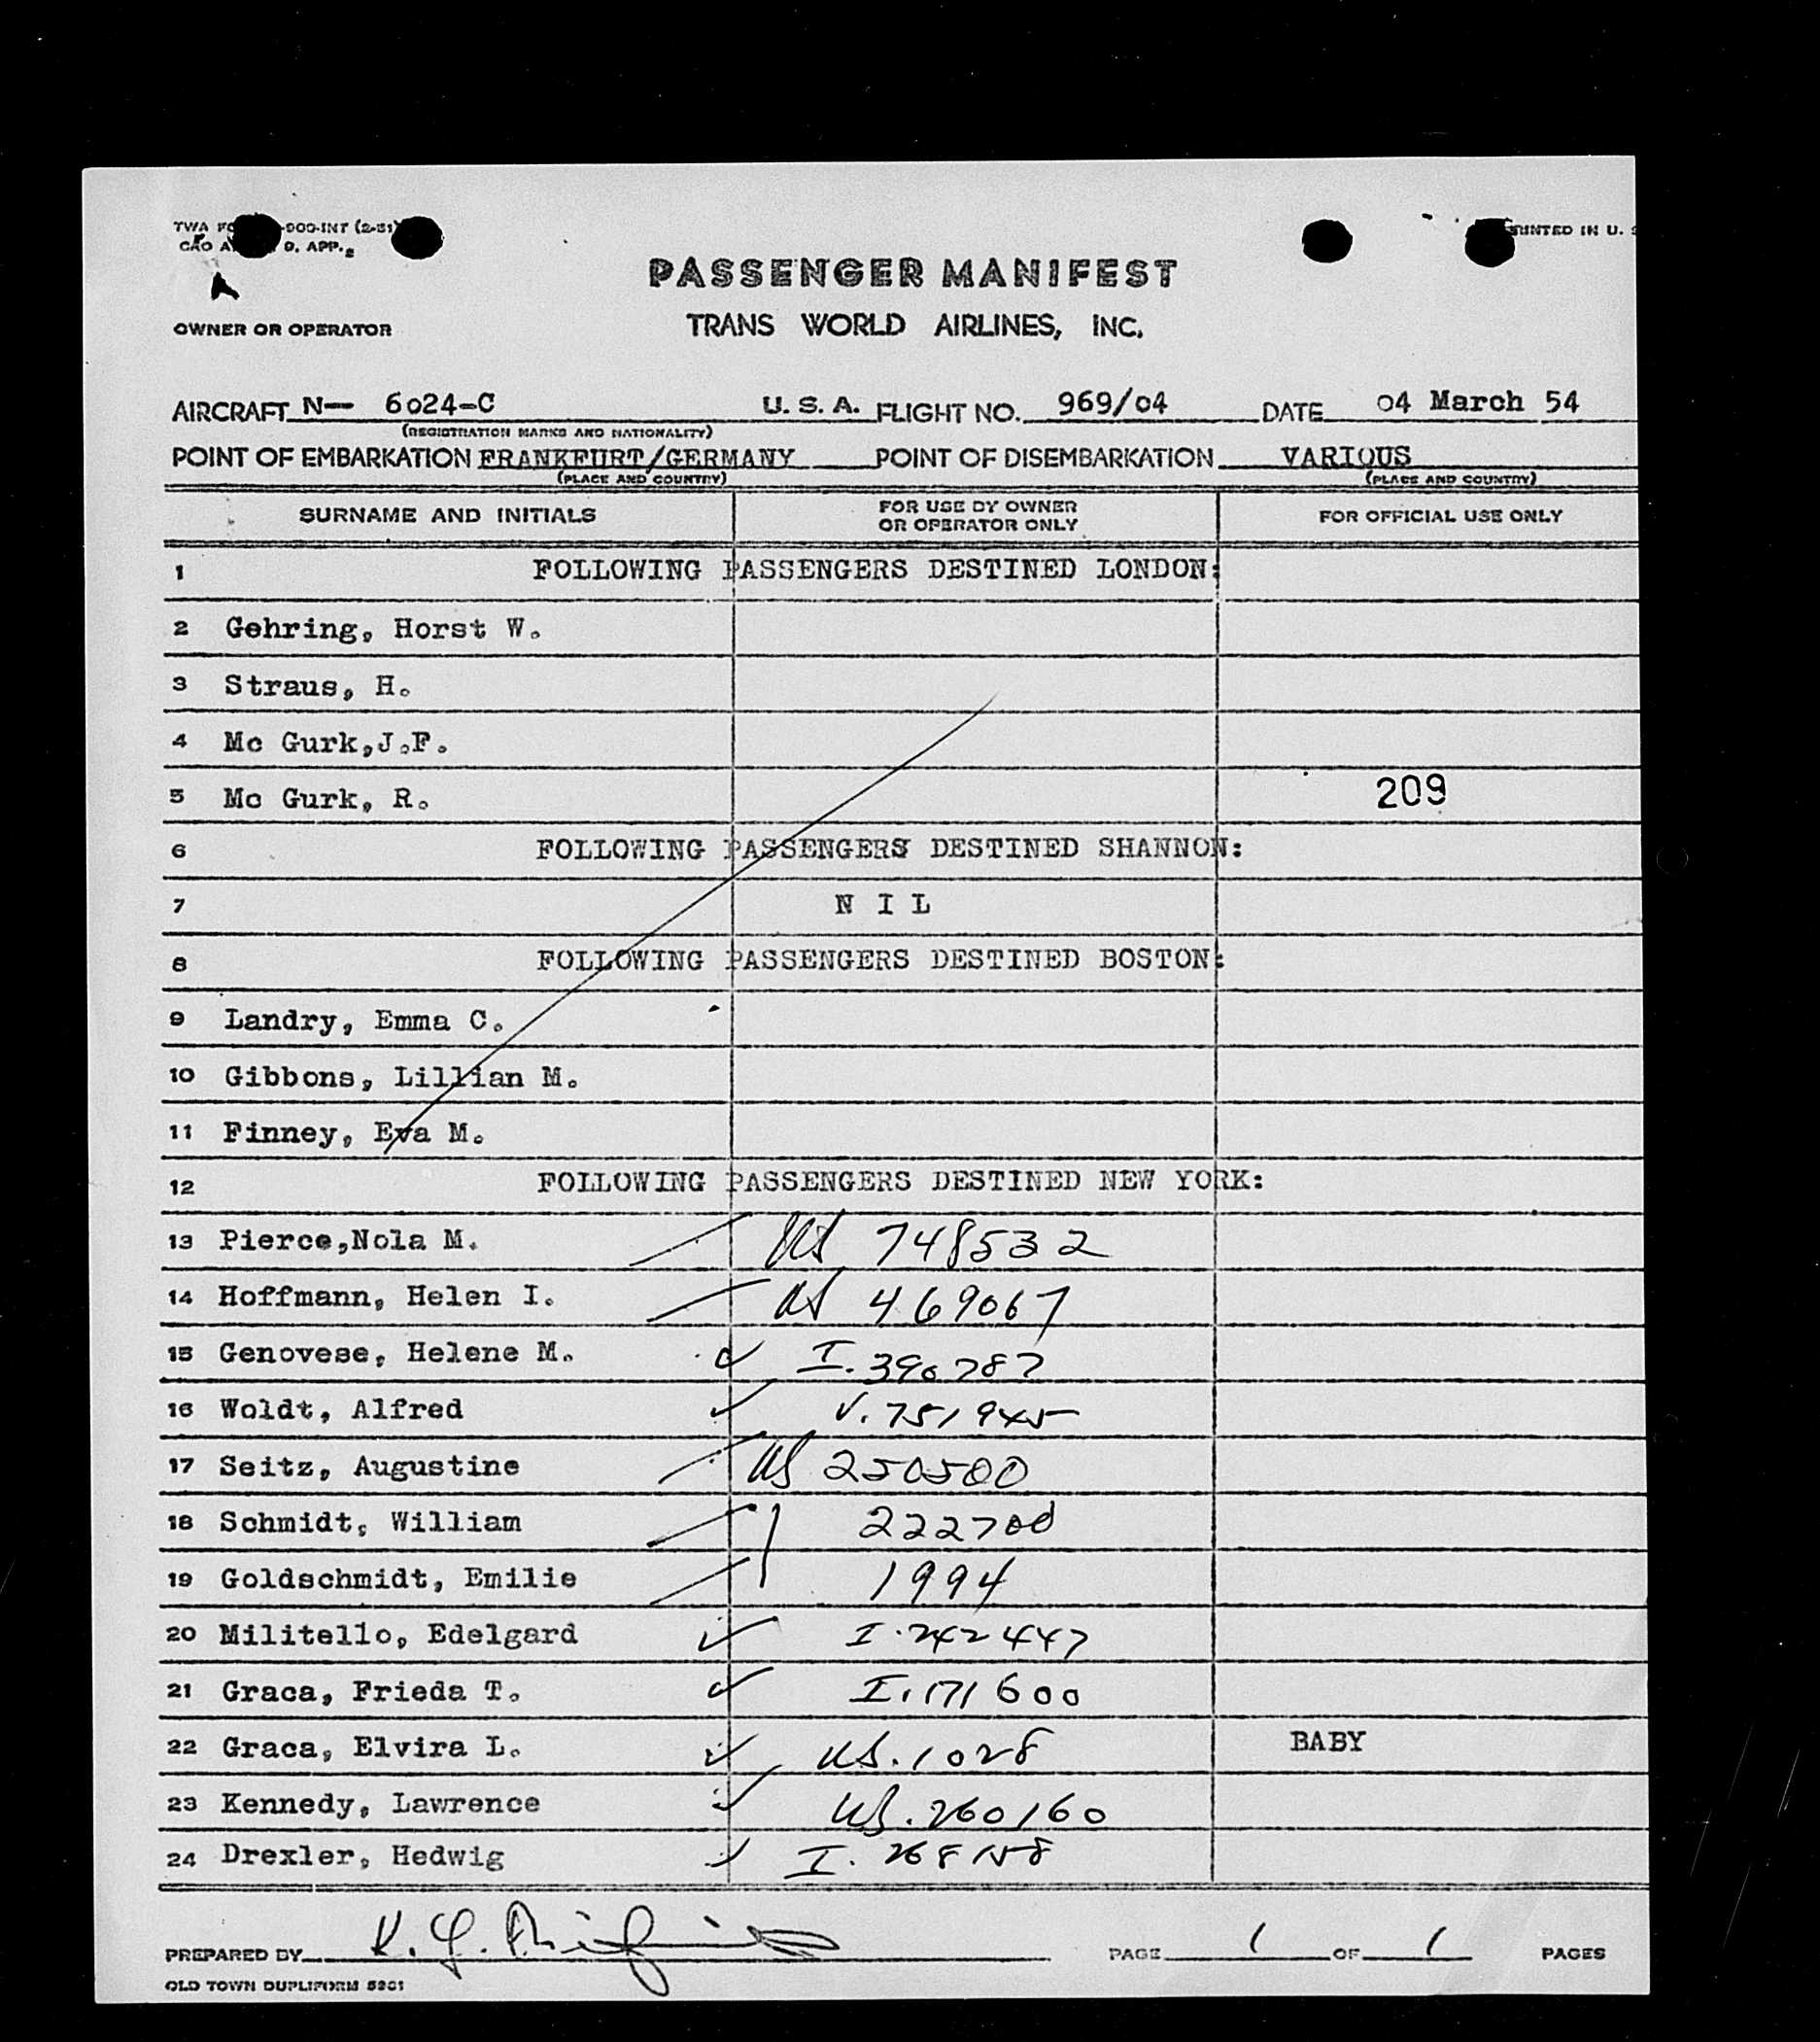 -900-INT (2-51)
D. APP.
PRINTED IN U. S
PASSENGER MANIFEST
OWNER OR OPERATOR
TRANS WORLD AIRLINES, INC.
AIRCRAFT N— 6024-C U. S. A. FLIGHT NO. 969/04 DATE 04 March 54
(REGISTRATION MARKS AND NATIONALITY)
POINT OF EMBARKATION FRANKFURT/GERMANY POINT OF DISEMBARKATION VARIOUS
(PLACE AND COUNTRY) (PLACE AND COUNTRY)
SURNAME AND INITIALS FOR USE BY OWNER OR OPERATOR ONLY FOR OFFICIAL USE ONLY
1 FOLLOWING PASSENGERS DESTINED LONDON:
2 Gehring, Horst W.
3 Straus, H.
4 Mc Gurk,J.F.
5 Mc Gurk, R. 209
6 FOLLOWING PASSENGERS DESTINED SHANNON:
7 N I L
8 FOLLOWING PASSENGERS DESTINED BOSTON:
9 Landry, Emma C.
10 Gibbons, Lillian M.
11 Finney, Eva M.
12 FOLLOWING PASSENGERS DESTINED NEW YORK:
13 Pierce,Nola M. US 748532
14 Hoffmann, Helen I. US 469067
15 Genovese, Helene M. I. 390787
16 Woldt, Alfred V. 751945
17 Seitz, Augustine US 250500
18 Schmidt, William 222700
19 Goldschmidt, Emilie 1994
20 Militello, Edelgard I. 242447
21 Graca, Frieda T. I. 171600
22 Graca, Elvira L. US. 1028 BABY
23 Kennedy, Lawrence US. 260160
24 Drexler, Hedwig I. 268158
PREPARED BY PAGE 1 OF 1 PAGES
OLD TOWN DUPLIFORM 5201